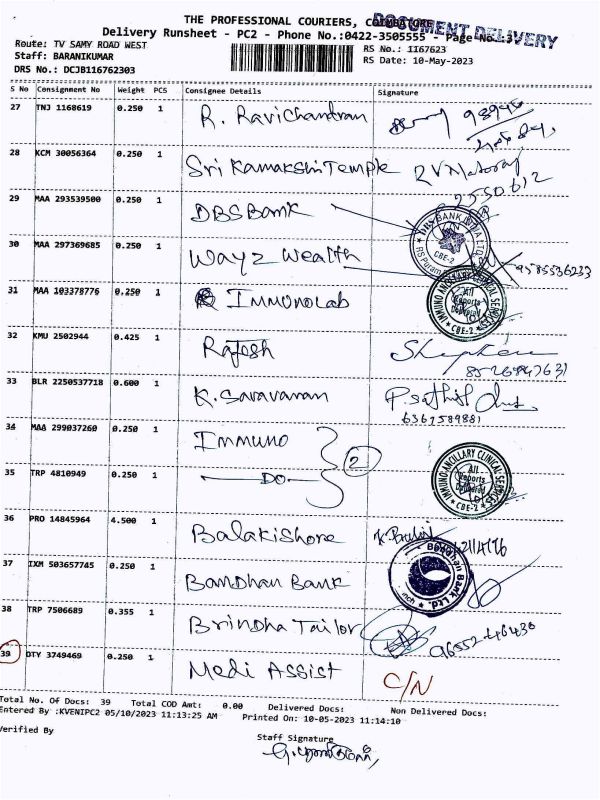 THE PROFESSIONAL COURIERS, COIMBATORE
DOCUMENT DELIVERY
Delivery Runsheet - PC2 - Phone No.:0422-3505555 - Page No.:3
Route: TV SAMY ROAD WEST
RS No.: 1167623
Staff: BARANIKUMAR
RS Date: 10-May-2023
DRS No.: DCJB116762303
S No Consignment No Weight PCS Consignee Details Signature
27 TNJ 1168619 0.250 1 R. Ravichandran
28 KCM 30056364 0.250 1 Sri Kamakshi Temple RV Nataraj
2550612
29 MAA 293539500 0.250 1 DBS Bank
DBS BANK INDIA LTD
CBE-2
30 MAA 297369685 0.250 1 Wayz Wealth
9585536233
31 MAA 103378776 0.250 1 Immunolab
IMMUNO ANCILLARY CLINICAL SERVICES
All Reports Delivered
CBE-2
32 KMU 2502944 0.425 1 Rajesh Stephen
33 BLR 2250537718 0.600 1 K. Saravanan P. Sathish
6367589881
34 MAA 299037260 0.250 1 Immuno
2
35 TRP 4810949 0.250 1 DO
IMMUNO ANCILLARY CLINICAL SERVICES
All Reports Delivered
CBE-2
36 PRO 14845964 4.500 1 Balakishore
37 IXM 503657745 0.250 1 Bandhan Bank
Bandhan Bank Ltd.
38 TRP 7506689 0.355 1 Brindha Tailor
96552-46436
39 DTY 3749469 0.250 1 Medi Assist C/N
Total No. Of Docs: 39 Total COD Amt: 0.00 Delivered Docs: Non Delivered Docs:
Entered By :KVENIPC2 05/10/2023 11:13:25 AM Printed On: 10-05-2023 11:14:10
Verified By
Staff Signature